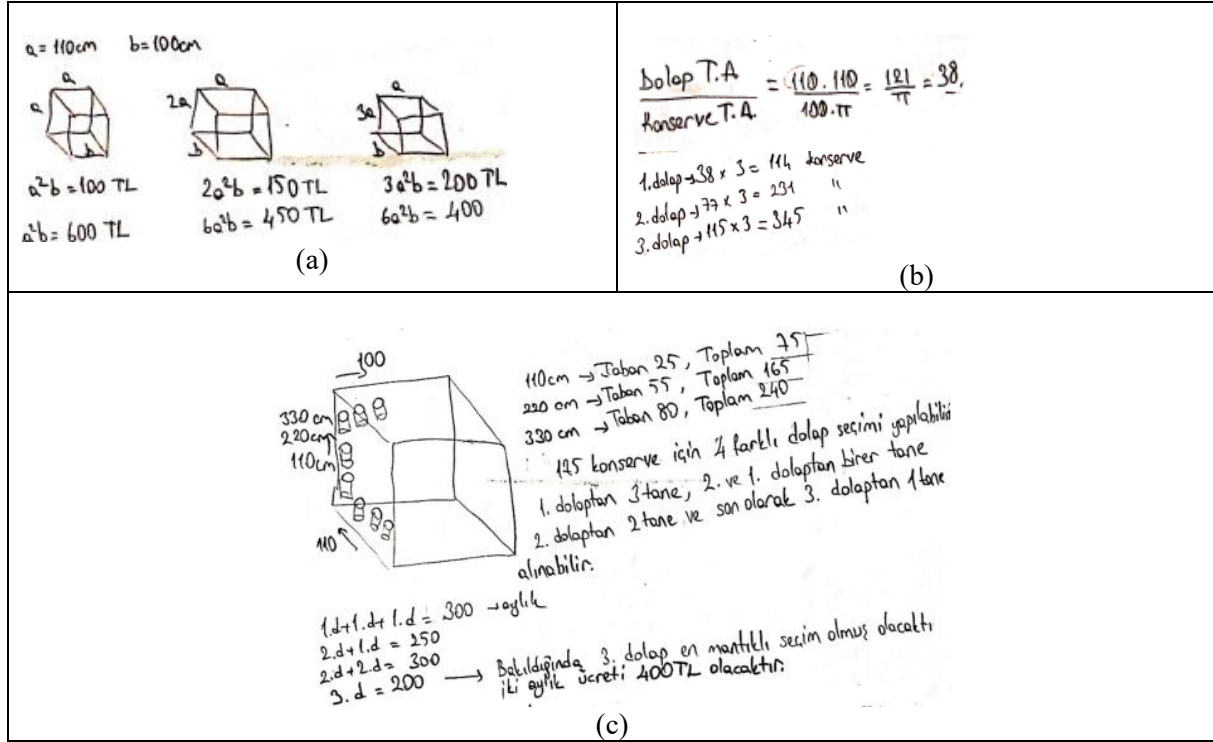 a = 110cm b = 100cm
a a a
a 2a 3a
b b b
a²b = 100 TL 2a²b = 150 TL 3a²b = 200 TL
a²b = 600 TL 6a²b = 450 TL 6a²b = 400
(a)
Dolap T.A / Konserve T.A. = 110.110 / 100.π = 121 / π = 38.
1.dolap → 38 x 3 = 114 konserve
2.dolap → 77 x 3 = 231 "
3.dolap → 115 x 3 = 345 "
(b)
100
330 cm
220cm
110cm
110
110cm → Taban 25, Toplam 75
220 cm → Taban 55, Toplam 165
330 cm → Taban 80, Toplam 240
125 konserve için 4 farklı dolap seçimi yapılabilir
1. dolaptan 3 tane, 2. ve 1. dolaptan birer tane
2. dolaptan 2 tane ve son olarak 3. dolaptan 1 tane
alınabilir.
1.d+1.d+1.d = 300 → aylık
2.d+1.d = 250
2.d+2.d = 300
3.d = 200 → Bakıldığında 3. dolap en mantıklı seçim olmuş olacaktı
iki aylık ücreti 400TL olacaktır.
(c)